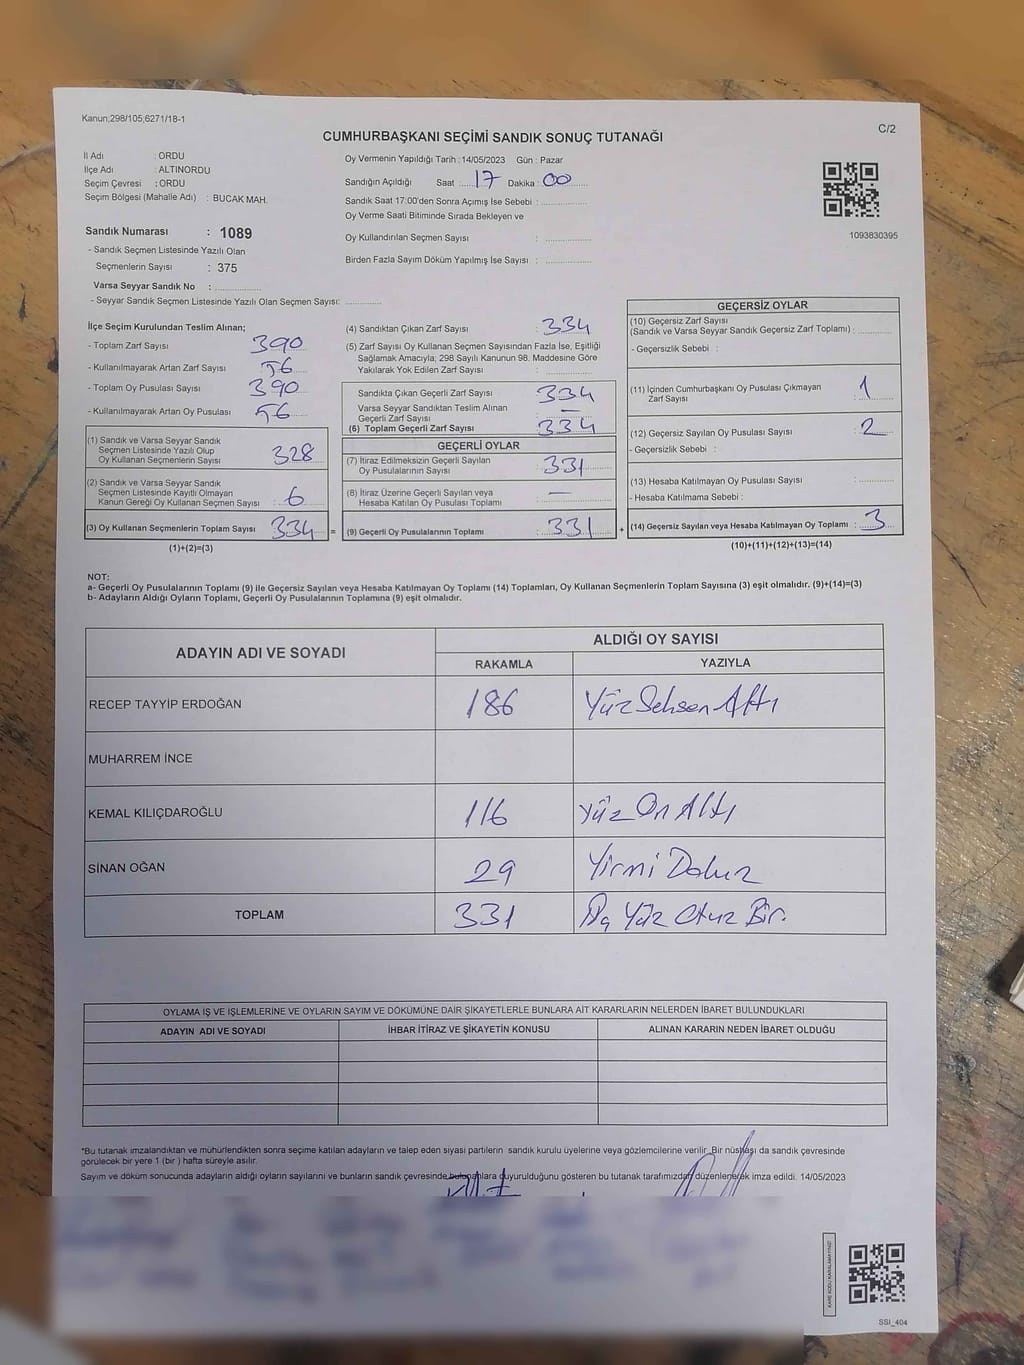 Kanun;298/105;6271/18-1
C/2
CUMHURBAŞKANI SEÇİMİ SANDIK SONUÇ TUTANAĞI
İl Adı : ORDU
İlçe Adı : ALTINORDU
Seçim Çevresi : ORDU
Seçim Bölgesi (Mahalle Adı) : BUCAK MAH.
Sandık Numarası : 1089
- Sandık Seçmen Listesinde Yazılı Olan
Seçmenlerin Sayısı : 375
Varsa Seyyar Sandık No :
- Seyyar Sandık Seçmen Listesinde Yazılı Olan Seçmen Sayısı:
Oy Vermenin Yapıldığı Tarih : 14/05/2023 Gün : Pazar
Sandığın Açıldığı Saat : 17 Dakika : 00
Sandık Saat 17:00'den Sonra Açımış İse Sebebi :
Oy Verme Saati Bitiminde Sırada Bekleyen ve
Oy Kullandırılan Seçmen Sayısı :
Birden Fazla Sayım Döküm Yapılmış İse Sayısı :
1093830395
İlçe Seçim Kurulundan Teslim Alınan;
- Toplam Zarf Sayısı 390
- Kullanılmayarak Artan Zarf Sayısı 56
- Toplam Oy Pusulası Sayısı 390
- Kullanılmayarak Artan Oy Pusulası 56
(1) Sandık ve Varsa Seyyar Sandık
Seçmen Listesinde Yazılı Olup
Oy Kullanan Seçmenlerin Sayısı 328
(2) Sandık ve Varsa Seyyar Sandık
Seçmen Listesinde Kayıtlı Olmayan
Kanun Gereği Oy Kullanan Seçmen Sayısı : 6
(3) Oy Kullanan Seçmenlerin Toplam Sayısı 334 =
(1)+(2)=(3)
(4) Sandıktan Çıkan Zarf Sayısı : 334
(5) Zarf Sayısı Oy Kullanan Seçmen Sayısından Fazla İse, Eşitliği
Sağlamak Amacıyla; 298 Sayılı Kanunun 98. Maddesine Göre
Yakılarak Yok Edilen Zarf Sayısı :
Sandıkta Çıkan Geçerli Zarf Sayısı 334
Varsa Seyyar Sandıktan Teslim Alınan
Geçerli Zarf Sayısı : —
(6) Toplam Geçerli Zarf Sayısı 334
GEÇERLİ OYLAR
(7) İtiraz Edilmeksizin Geçerli Sayılan
Oy Pusulalarının Sayısı : 331
(8) İtiraz Üzerine Geçerli Sayılan veya
Hesaba Katılan Oy Pusulası Toplamı : —
(9) Geçerli Oy Pusulalarının Toplamı : 331 +
GEÇERSİZ OYLAR
(10) Geçersiz Zarf Sayısı
(Sandık ve Varsa Seyyar Sandık Geçersiz Zarf Toplamı) :
- Geçersizlik Sebebi :
(11) İçinden Cumhurbaşkanı Oy Pusulası Çıkmayan
Zarf Sayısı : 1
(12) Geçersiz Sayılan Oy Pusulası Sayısı : 2
- Geçersizlik Sebebi :
(13) Hesaba Katılmayan Oy Pusulası Sayısı :
- Hesaba Katılmama Sebebi :
(14) Geçersiz Sayılan veya Hesaba Katılmayan Oy Toplamı : 3
(10)+(11)+(12)+(13)=(14)
NOT:
a- Geçerli Oy Pusulalarının Toplamı (9) ile Geçersiz Sayılan veya Hesaba Katılmayan Oy Toplamı (14) Toplamları, Oy Kullanan Seçmenlerin Toplam Sayısına (3) eşit olmalıdır. (9)+(14)=(3)
b- Adayların Aldığı Oyların Toplamı, Geçerli Oy Pusulalarının Toplamına (9) eşit olmalıdır.
ADAYIN ADI VE SOYADI ALDIĞI OY SAYISI
RAKAMLA YAZIYLA
RECEP TAYYİP ERDOĞAN 186 Yüz Seksen Altı
MUHARREM İNCE
KEMAL KILIÇDAROĞLU 116 Yüz On Altı
SİNAN OĞAN 29 Yirmi Dokuz
TOPLAM 331 Üç Yüz Otuz Bir.
OYLAMA İŞ VE İŞLEMLERİNE VE OYLARIN SAYIM VE DÖKÜMÜNE DAİR ŞİKAYETLERLE BUNLARA AİT KARARLARIN NELERDEN İBARET BULUNDUKLARI
ADAYIN ADI VE SOYADI İHBAR İTİRAZ VE ŞİKAYETİN KONUSU ALINAN KARARIN NEDEN İBARET OLDUĞU
*Bu tutanak imzalandıktan ve mühürlendikten sonra seçime katılan adayların ve talep eden siyasi partilerin sandık kurulu üyelerine veya gözlemcilerine verilir. Bir nüshası da sandık çevresinde
görülecek bir yere 1 (bir ) hafta süreyle asılır.
Sayım ve döküm sonucunda adayların aldığı oyların sayılarını ve bunların sandık çevresinde bulunanlara duyurulduğunu gösteren bu tutanak tarafımızdan düzenlenerek imza edildi. 14/05/2023
KARE KODU KARALAMAYINIZ!
SSI_404